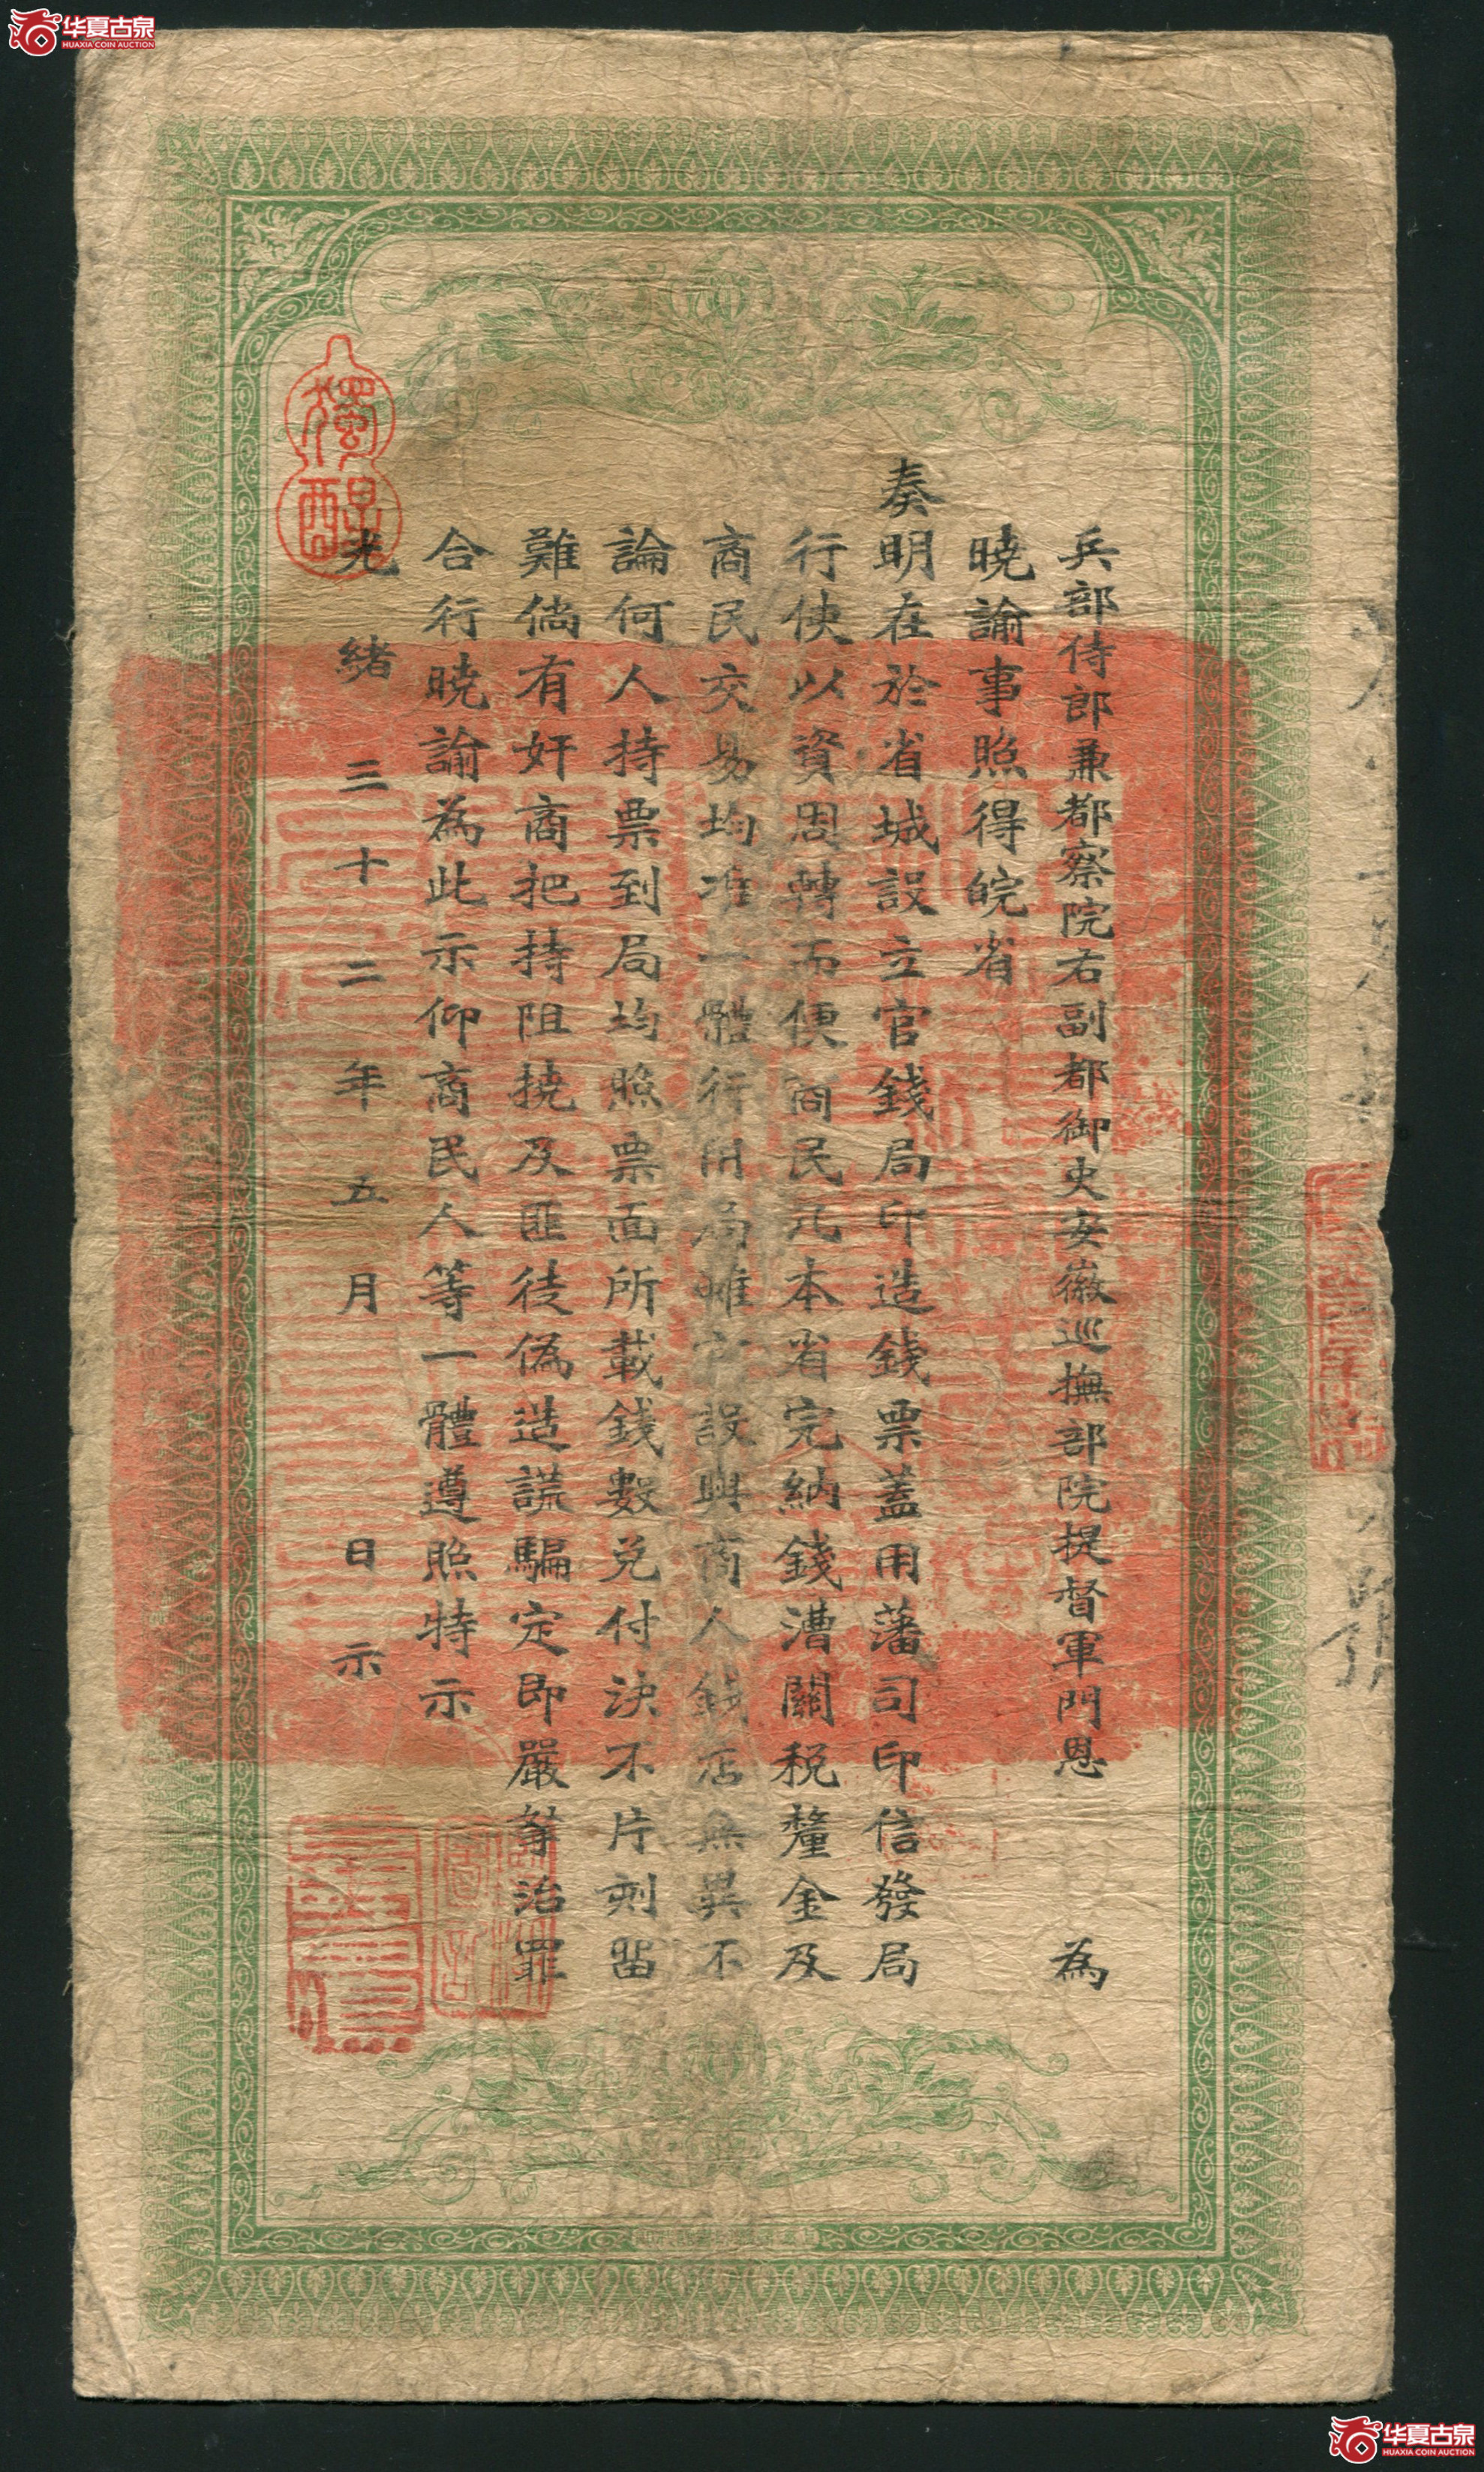 华夏古泉
HUAXIA COIN AUCTION
兵部侍郎兼都察院右副都御史安徽巡撫部院提督軍門恩 為
曉諭事照得皖省
奏明在於省城設立官錢局印造錢票蓋用藩司印信發局
行使以資周轉而便商民凡本省完納錢漕關稅釐金及
商民交易均准一體行用局雖官設與商人錢店無異不
論何人持票到局均照票面所載錢數兌付決不片刻留
難倘有奸商把持阻撓及匪徒偽造謊騙定即嚴拏治罪
合行曉諭為此示仰商民人等一體遵照特示
光緒三十二年五月 日示
獨醒
华夏古泉
HUAXIA COIN AUCTION